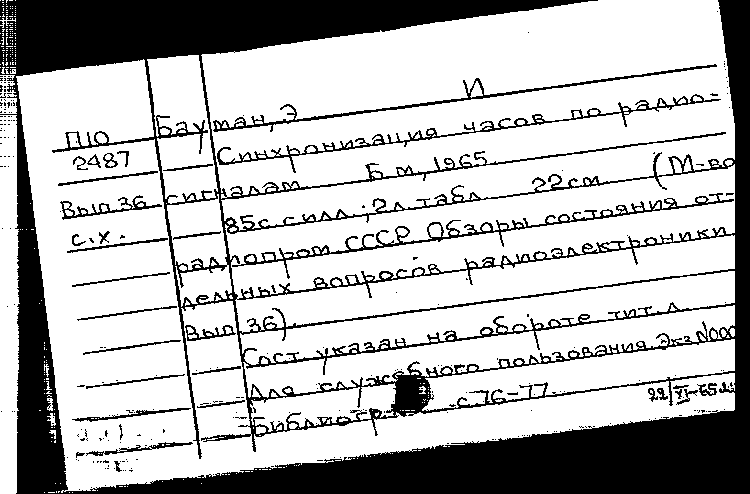 И
П10 Бауман, Э
2487 Синхронизация часов по радио=
Вып. 36 сигналам. Б м, 1965.
с.х. 85с с илл.; 2л. табл 22 см (М-во
радиопром СССР Обзоры состояния от=
дельных вопросов радиоэлектроники.
Вып. 36).
Сост указан на обороте тит. л.
Для служебного пользования. Экз №000
Библиогр. с. 76-77.
22/XI-65